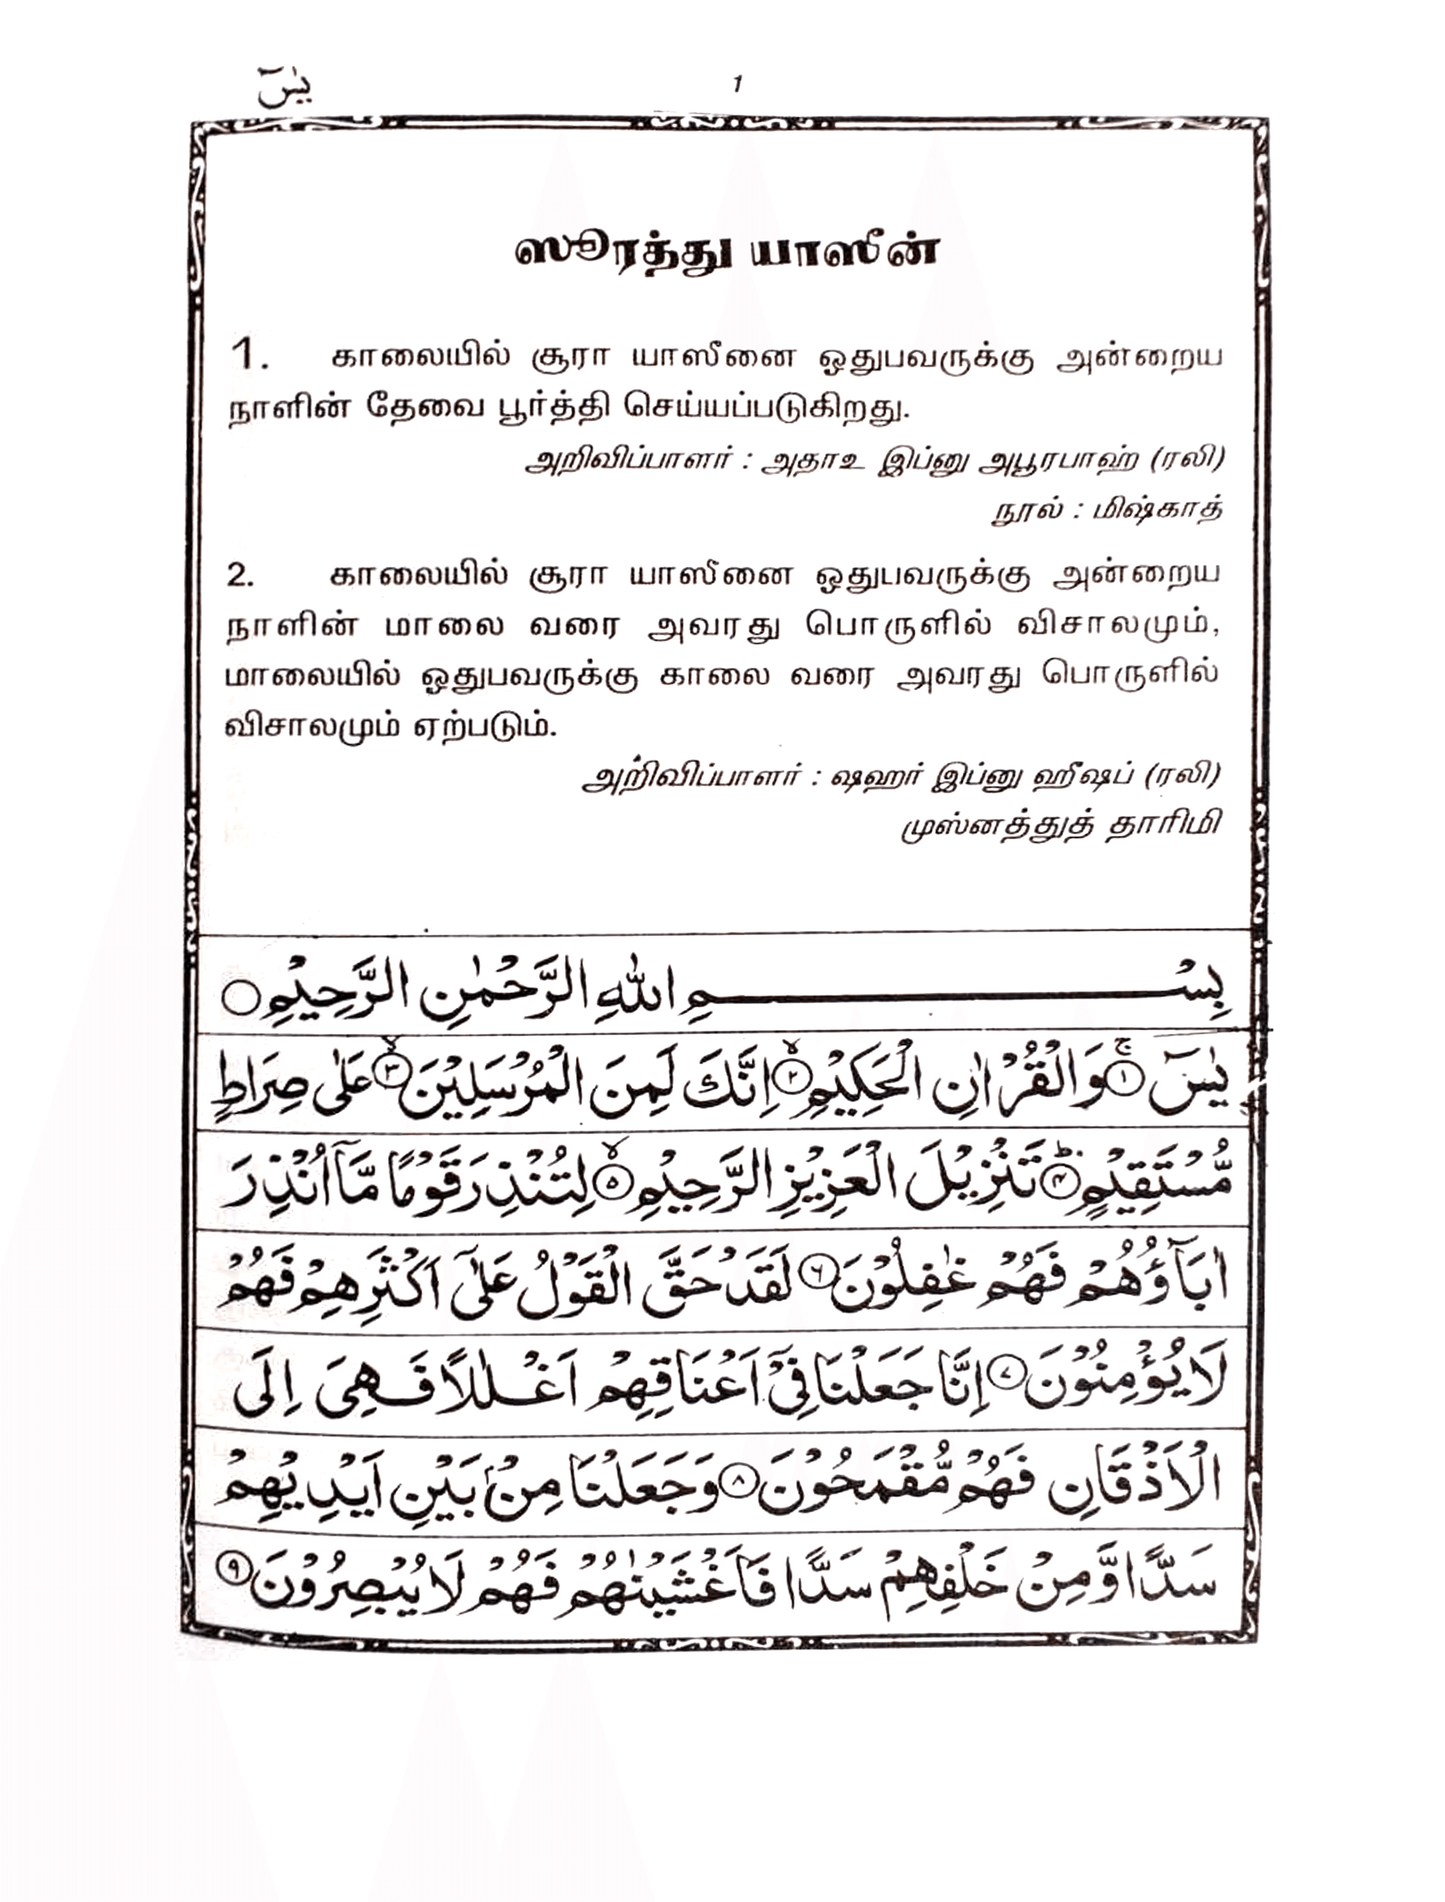 يٰسٓ
1
ஸூரத்து யாஸீன்
1. காலையில் சூரா யாஸீனை ஓதுபவருக்கு அன்றைய
நாளின் தேவை பூர்த்தி செய்யப்படுகிறது.
அறிவிப்பாளர் : அதாஉ இப்னு அபூரபாஹ் (ரலி)
நூல் : மிஷ்காத்
2. காலையில் சூரா யாஸீனை ஓதுபவருக்கு அன்றைய
நாளின் மாலை வரை அவரது பொருளில் விசாலமும்,
மாலையில் ஓதுபவருக்கு காலை வரை அவரது பொருளில்
விசாலமும் ஏற்படும்.
அறிவிப்பாளர் : ஷஹர் இப்னு ஹீஷப் (ரலி)
முஸ்னத்துத் தாரிமி
بِسْمِ اللهِ الرَّحْمٰنِ الرَّحِيْمِ ○
يٰسٓ ۚ﴿۱﴾ وَالْقُرْاٰنِ الْحَكِيْمِ ۙ﴿۲﴾ اِنَّكَ لَمِنَ الْمُرْسَلِيْنَ ۙ﴿۳﴾ عَلٰى صِرَاطٍ
مُّسْتَقِيْمٍ ؕ﴿۴﴾ تَنْزِيْلَ الْعَزِيْزِ الرَّحِيْمِ ۙ﴿۵﴾ لِتُنْذِرَ قَوْمًا مَّاۤ اُنْذِرَ
اٰبَآؤُهُمْ فَهُمْ غٰفِلُوْنَ ﴿۶﴾ لَقَدْ حَقَّ الْقَوْلُ عَلٰٓى اَكْثَرِهِمْ فَهُمْ
لَا يُؤْمِنُوْنَ ﴿۷﴾ اِنَّا جَعَلْنَا فِيْۤ اَعْنَاقِهِمْ اَغْلٰلًا فَهِيَ اِلَى
الْاَذْقَانِ فَهُمْ مُّقْمَحُوْنَ ﴿۸﴾ وَجَعَلْنَا مِنْۢ بَيْنِ اَيْدِيْهِمْ
سَدًّا وَّمِنْ خَلْفِهِمْ سَدًّا فَاَغْشَيْنٰهُمْ فَهُمْ لَا يُبْصِرُوْنَ ﴿۹﴾